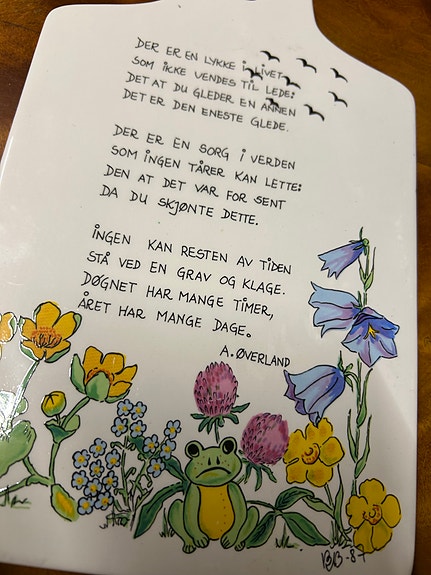 DER ER EN LYKKE i LIVET
SOM iKKE VENDES TiL LEDE:
DET AT DU GLEDER EN ANNEN
DET ER DEN ENESTE GLEDE.
DER ER EN SORG i VERDEN
SOM iNGEN TÅRER KAN LETTE:
DEN AT DET VAR FOR SENT
DA DU SKJØNTE DETTE.
iNGEN KAN RESTEN AV TiDEN
STÅ VED EN GRAV OG KLAGE.
DØGNET HAR MANGE TiMER,
ÅRET HAR MANGE DAGE.
A. ØVERLAND
BB-87